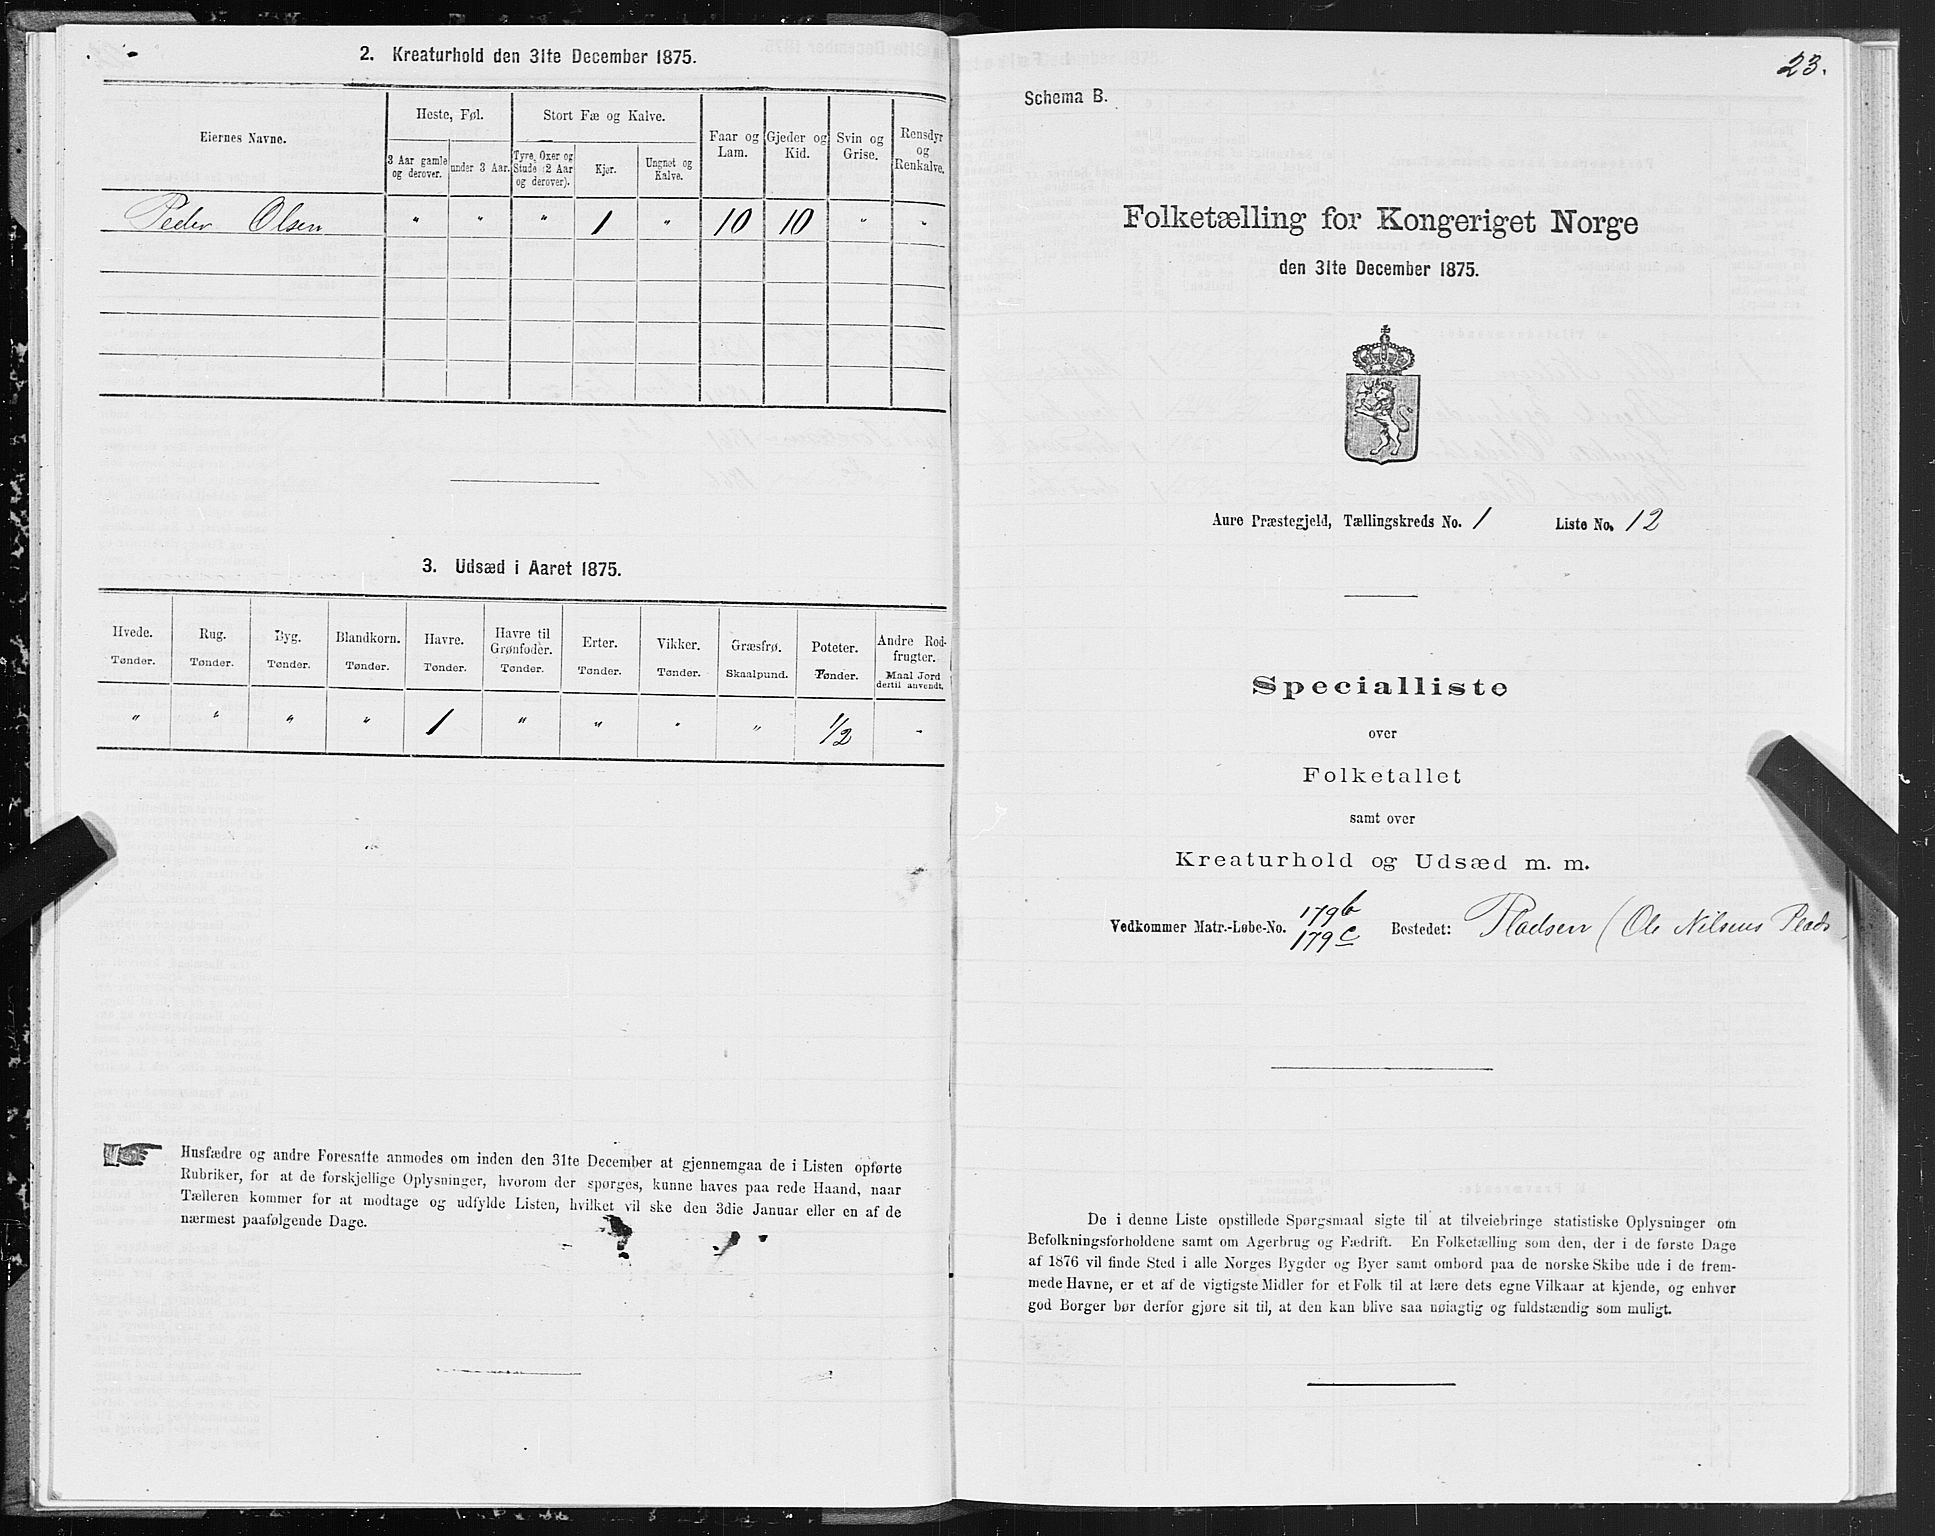 2. Kreaturhold den 31te December 1875.
Eiernes Navne.
Heste, Føl.
Stort Fæ og Kalve.
Faar og Lam.
Gjeder og Kid.
Svin og Grise.
Rensdyr og Renkalve.
3 Aar gamle og derover.
under 3 Aar.
Tyre, Oxer og Stude (2 Aar og derover).
Kjør.
Ungnet og Kalve.
Peder Olsen " " " 1 " 10 10 " "
3. Udsæd i Aaret 1875.
Hvede. Rug. Byg. Blandkorn. Havre. Havre til Grønfoder. Erter. Vikker. Græsfrø. Poteter. Andre Rodfrugter.
Tønder. Tønder. Tønder. Tønder. Tønder. Tønder. Tønder. Tønder. Skaalpund. Tønder. Maal Jord dertil anvendt.
" " " " 1 " " " " 1/2 "
Husfædre og andre Foresatte anmodes om inden den 31te December at gjennemgaa de i Listen opførte
Rubriker, for at de forskjellige Oplysninger, hvorom der spørges, kunne haves paa rede Haand, naar
Tælleren kommer for at modtage og udfylde Listen, hvilket vil ske den 3die Januar eller en af de
nærmest paafølgende Dage.
23.
Schema B.
Folketælling for Kongeriget Norge
den 31te December 1875.
Aure Præstegjeld, Tællingskreds No. 1 Liste No. 12
Specialliste
over
Folketallet
samt over
Kreaturhold og Udsæd m. m.
Vedkommer Matr.-Løbe-No. 179b 179c Bestedet: Pladsen (Ole Nilsens Plads
De i denne Liste opstillede Spørgsmaal sigte til at tilveiebringe statistiske Oplysninger om
Befolkningsforholdene samt om Agerbrug og Fædrift. En Folketælling som den, der i de første Dage
af 1876 vil finde Sted i alle Norges Bygder og Byer samt ombord paa de norske Skibe ude i de frem-
mede Havne, er et af de vigtigste Midler for et Folk til at lære dets egne Vilkaar at kjende, og enhver
god Borger bør derfor gjøre sit til, at den kan blive saa nøiagtig og fuldstændig som muligt.